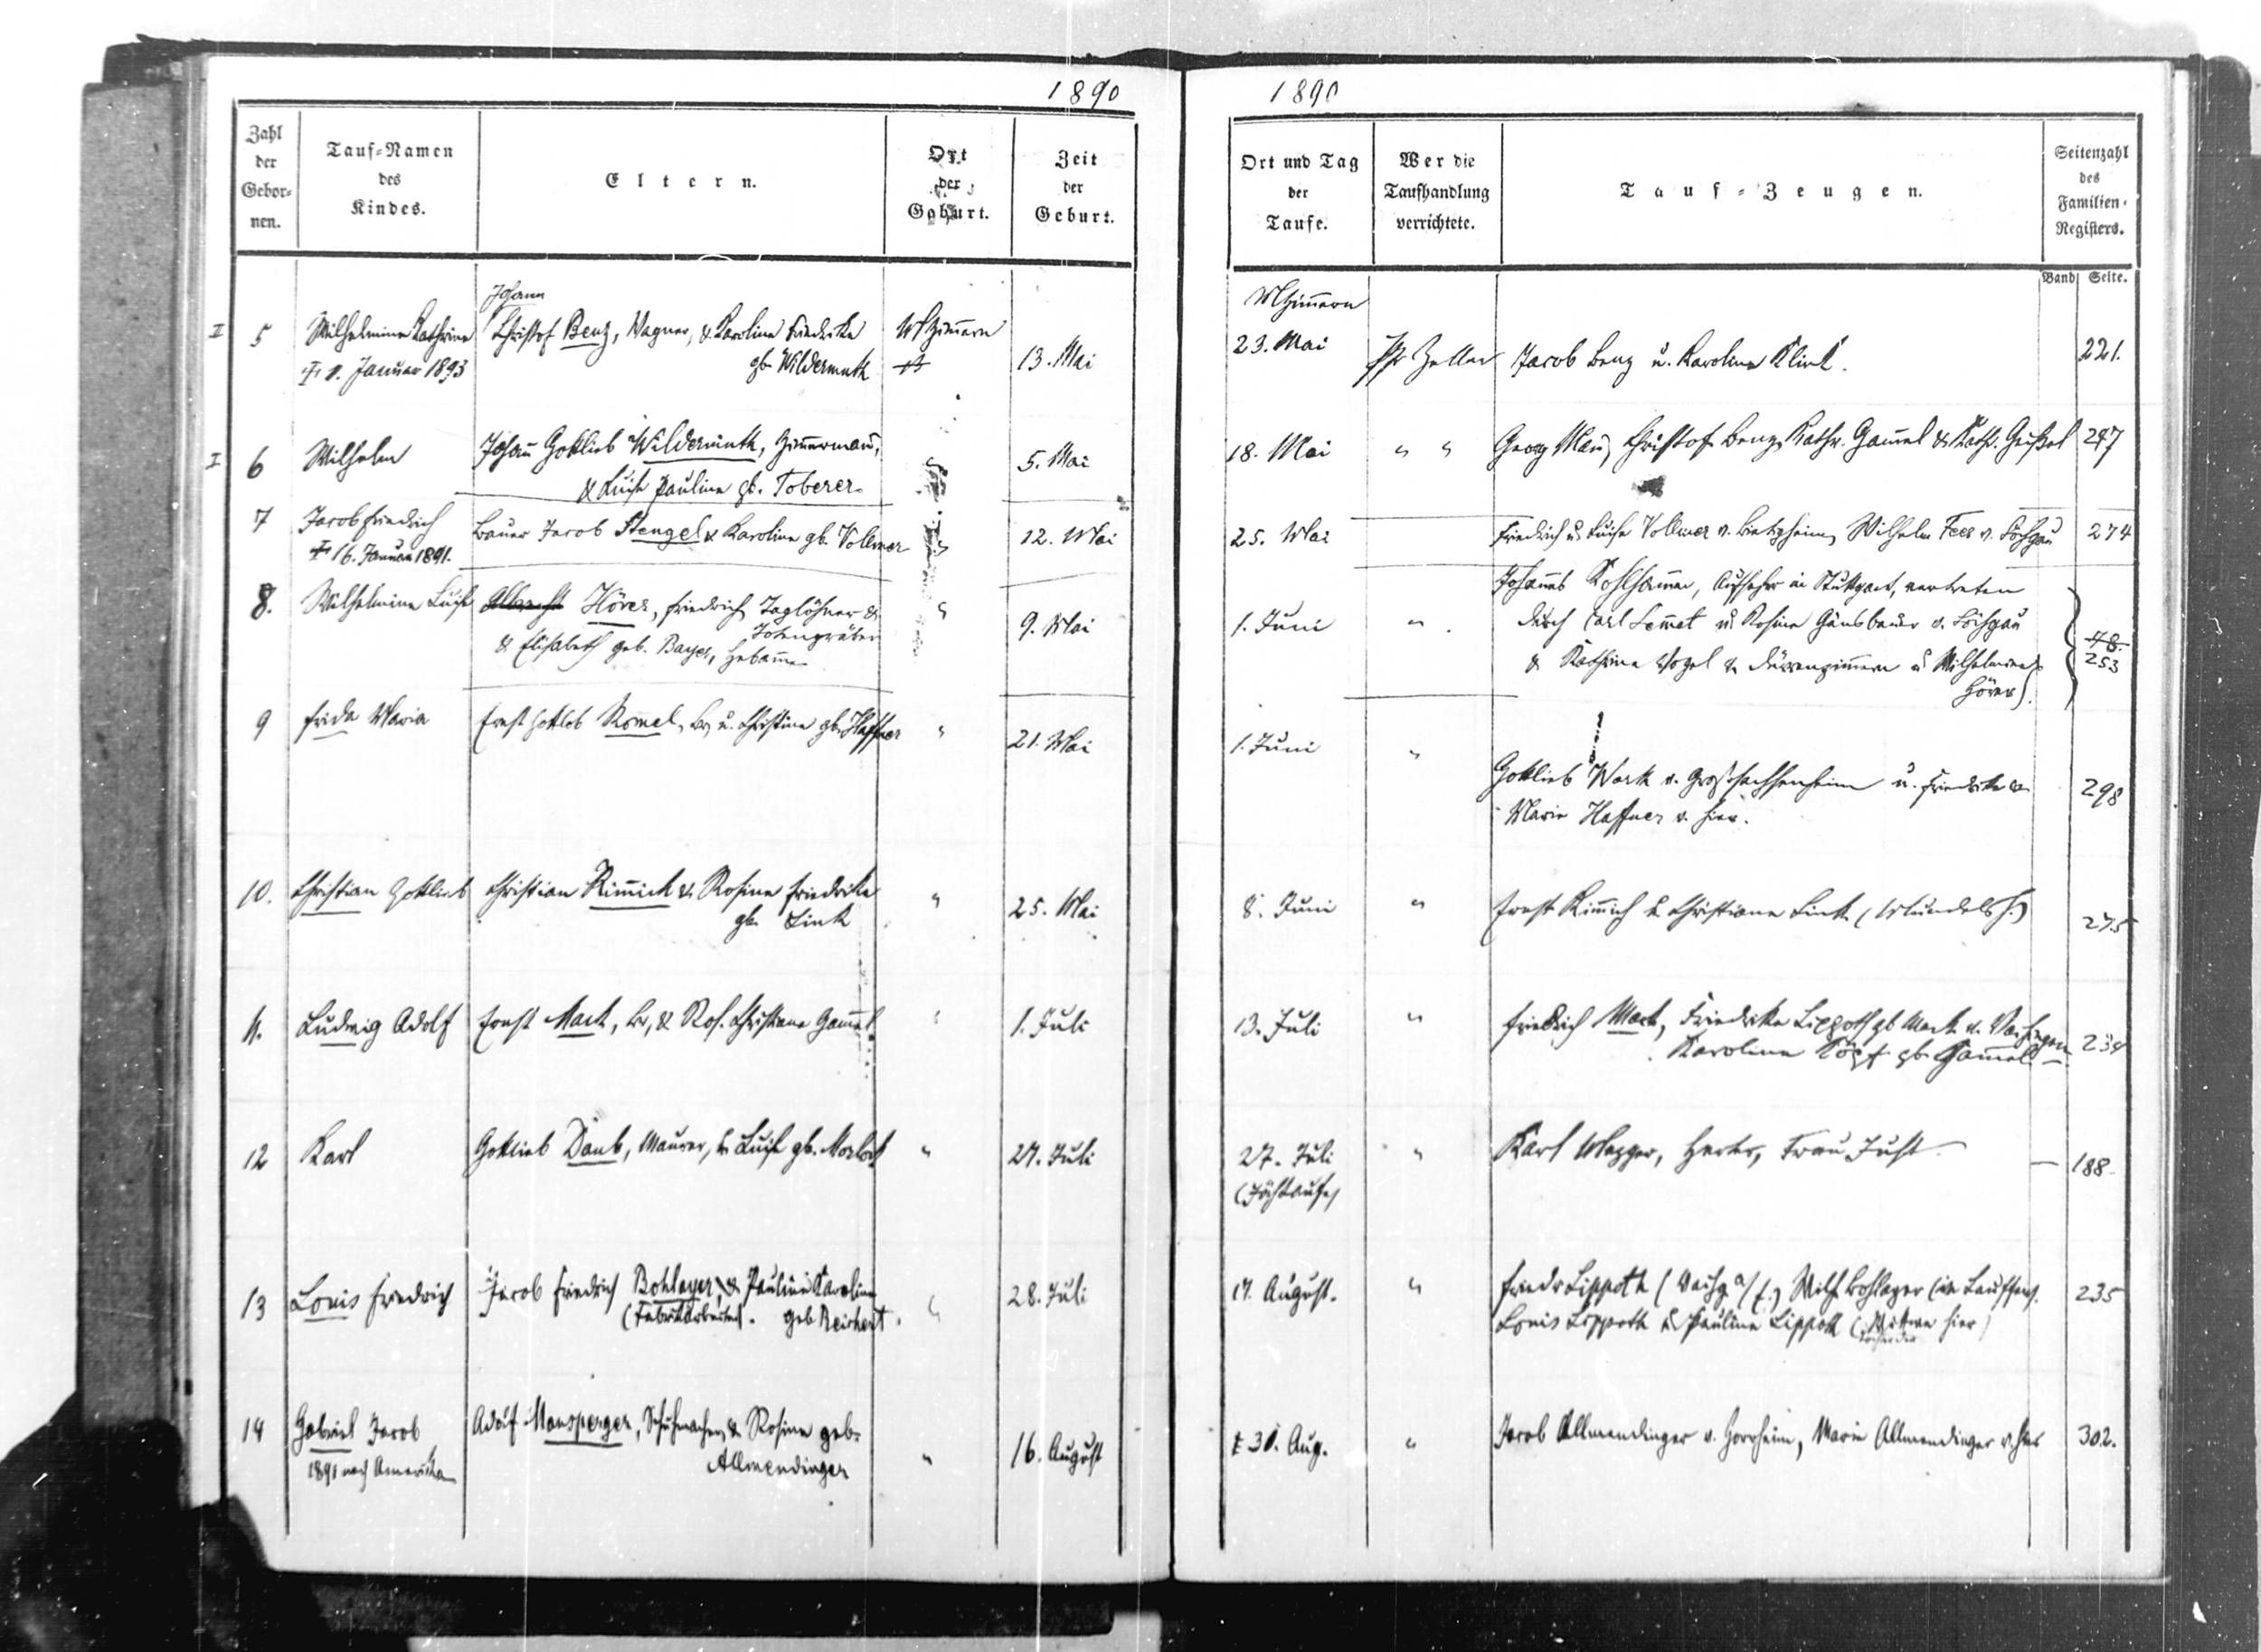 1890
Zahl der Gebor-nen.
Tauf-Namen des Kindes.
Eltern.
Ort der Geburt.
Zeit der Geburt.
5
Wilhelmine Kathrine
1. Januar 1893
Johann
Christof Benz, Wagner, & Karoline Friedrike
gb. Wildermuth
13. Mai
6
Wilhelm
Johañ Gottlieb Wildermuth, Zim̄ermañ,
& Luise Pauline gb. Toberer
5. Mai
7
Jacob Friedrich
16. Januar 1891.
Bauer Jacob Stengel & Karoline gb. Vollmer
12. Mai
8.
Wilhelmine Luise
Albrecht Hörer, Friedrich Taglöhner &
Totengräber
& Elisabeth geb. Bayer, Hebam̄e
9. Mai
9
Frida Maria
Ernst Gottlob Rom̄el, Br, u. Christine gb. Haffner
21. Mai
10.
Christian Gottlieb
Christian Kim̄ich & Rosine Friedrike
gb. Link
25. Mai
11.
Ludwig Adolf
Ernst Mack, Br, & Ros. Christiane Gam̄el
1. Juli
12
Karl
Gottlieb Daub, Maurer, & Luise gb. Morlok
27. Juli
13
Louis Friedrich
Jacob Friedrich Bohlayer, & Pauline Karoline
(Fabrikarbeiter). geb. Reichert
28. Juli
14
Gabriel Jacob
1891 nach Amerika
Adolf Mansperger, Schuhmacher, & Rosine geb.
Allmendinger
16. August
1890
Ort und Tag der Taufe.
Wer die Taufhandlung verrichtete.
Tauf-Zeugen.
Seitenzahl des Familien-Registers.
Band Seite.
23. Mai
Pfr Zeller
Jacob Benz u. Karoline Klink.
221.
18. Mai
" "
Georg Christof Benz, Kathr. Gam̄el & Kath.
247
25. Mai
Friedrich u. Luise Vollmer v. Bietigheim, Wilhelm Fees v. Löchgau
274
Johannes Kohlham̄er, Aufseher in Stuttgart, vertreten
1. Juni
durch Carl u. Rosine Gänsbauer v. Löchgau
48.
& Kathrine Vogel v. Dürrenzim̄ern u. Wilhelmine
253
Hörer).
1. Juni
Gottlieb Work v. Grossachsenheim u. Friedrike &
298
Marie Haffner v. hier.
8. Juni
Ernst Kim̄ich & Christiane Link (Mundelsh.)
275
13. Juli
Friedrich Mack, Friedrike Lippoth gb. Mack v. Vaihingen
Karoline Köpf gb. Gam̄el
234
27. Juli
(Jächtaufe)
Karl Wagger, Frau Just
188
17. August.
Friedr Lippoth (Vaihg a/E.) Wilh Bohlayer (in Lauffen).
235
Louis Lippoth & Pauline Lippoth hier)
31. Aug.
Jacob Allmendinger v. Horrheim, Marie Allmendinger v. hier
302.